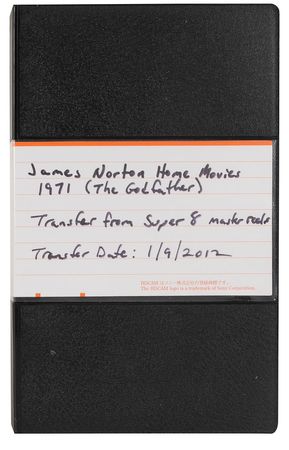 James Norton Home Movies
1971 (The Godfather)
Transfer from Super 8 master reels
Transfer Date: 1/9/2012
The HDCAM logo is a trademark of Sony Corporation.